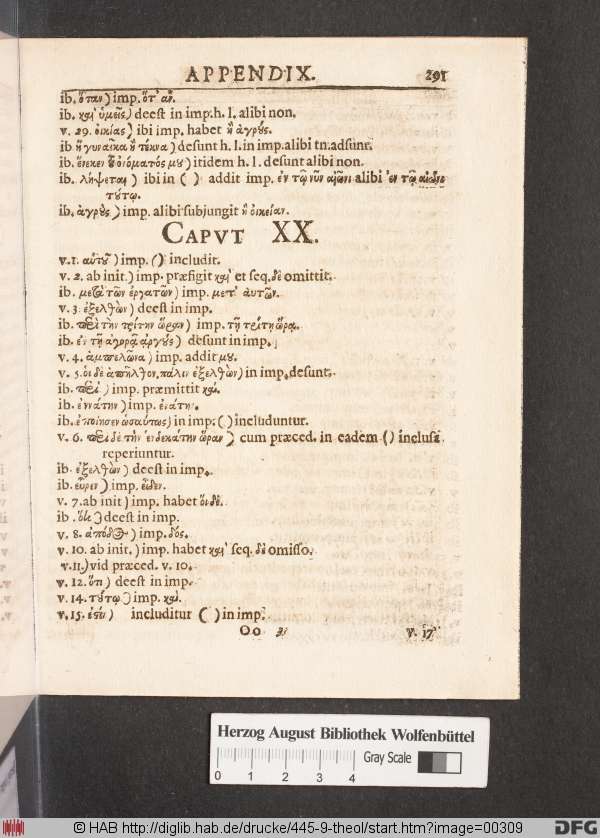 APPENDIX. 291
ib. ὅταν) imp. ὅτ' αν.
ib. καὶ ὑμεῖς) deest in imp. h. l. alibi non.
v. 29. οἰκίας) ibi imp. habet ἢ ἀγρȣ́ς.
ib ἢ γυναῖκα ἢ τέκνα) desunt h. l. in imp. alibi tn. adsunt.
ib. ἕνεκεν ὀνόματός μȣ) itidem h. l. desunt alibi non.
ib. λήψεται) ibi in ( ) addit imp. ἐν τῷ νῦν αἰῶνι alibi ἐν τῷ αἰῶνι
τȣ́τῳ.
ib. ἀγρȣ̀ς) imp. alibi subjungit ἢ οἰκείαν.
CAPVT XX.
v. 1. αὐτȣ͂) imp. () includit.
v. 2. ab init.) imp. præfigit καὶ et seq. δὲ omittit.
ib. μετὰ τῶν ἐργατῶν) imp. μετ' αὐτῶν.
v. 3. ἐξελθὼν) deest in imp.
ib. περὶ τὴν τρίτην ὥραν) imp. τῇ τρίτῃ ὥρᾳ.
ib. ἐν τῇ ἀγορᾷ ἀργȣ́ς) desunt in imp.
v. 4. ἀμπελῶνα) imp. addit μȣ.
v. 5. οἱ δὲ ἀπῆλθον. πάλιν ἐξελθὼν) in imp. desunt.
ib. περὶ) imp. præmittit καὶ.
ib. ἐννάτην) imp. ἐνάτην.
ib. ἐποίησεν ὡσαύτως) in imp. ( ) includuntur.
v. 6. περὶ δὲ τὴν ἑνδεκάτην ὥραν) cum præced. in eadem () inclusa
reperiuntur.
ib. ἐξελθὼν) deest in imp.
ib. εὗρεν) imp. εἶδεν.
v. 7. ab init) imp. habet οἱ δὲ.
ib. ὅτι) deest in imp.
v. 8. ἀπόδος) imp. δός.
v. 10. ab init.) imp. habet καὶ seq. δὲ omisso.
v. 11.) vid præced. v. 10.
v. 12. ὅτι) deest in imp.
v. 14. τȣ́τῳ) imp. καὶ.
v. 15. includitur ( ) in imp.
Oo 3 v. 17
Herzog August Bibliothek Wolfenbüttel
Gray Scale
0 1 2 3 4
© HAB http://diglib.hab.de/drucke/445-9-theol/start.htm?image=00309
DFG